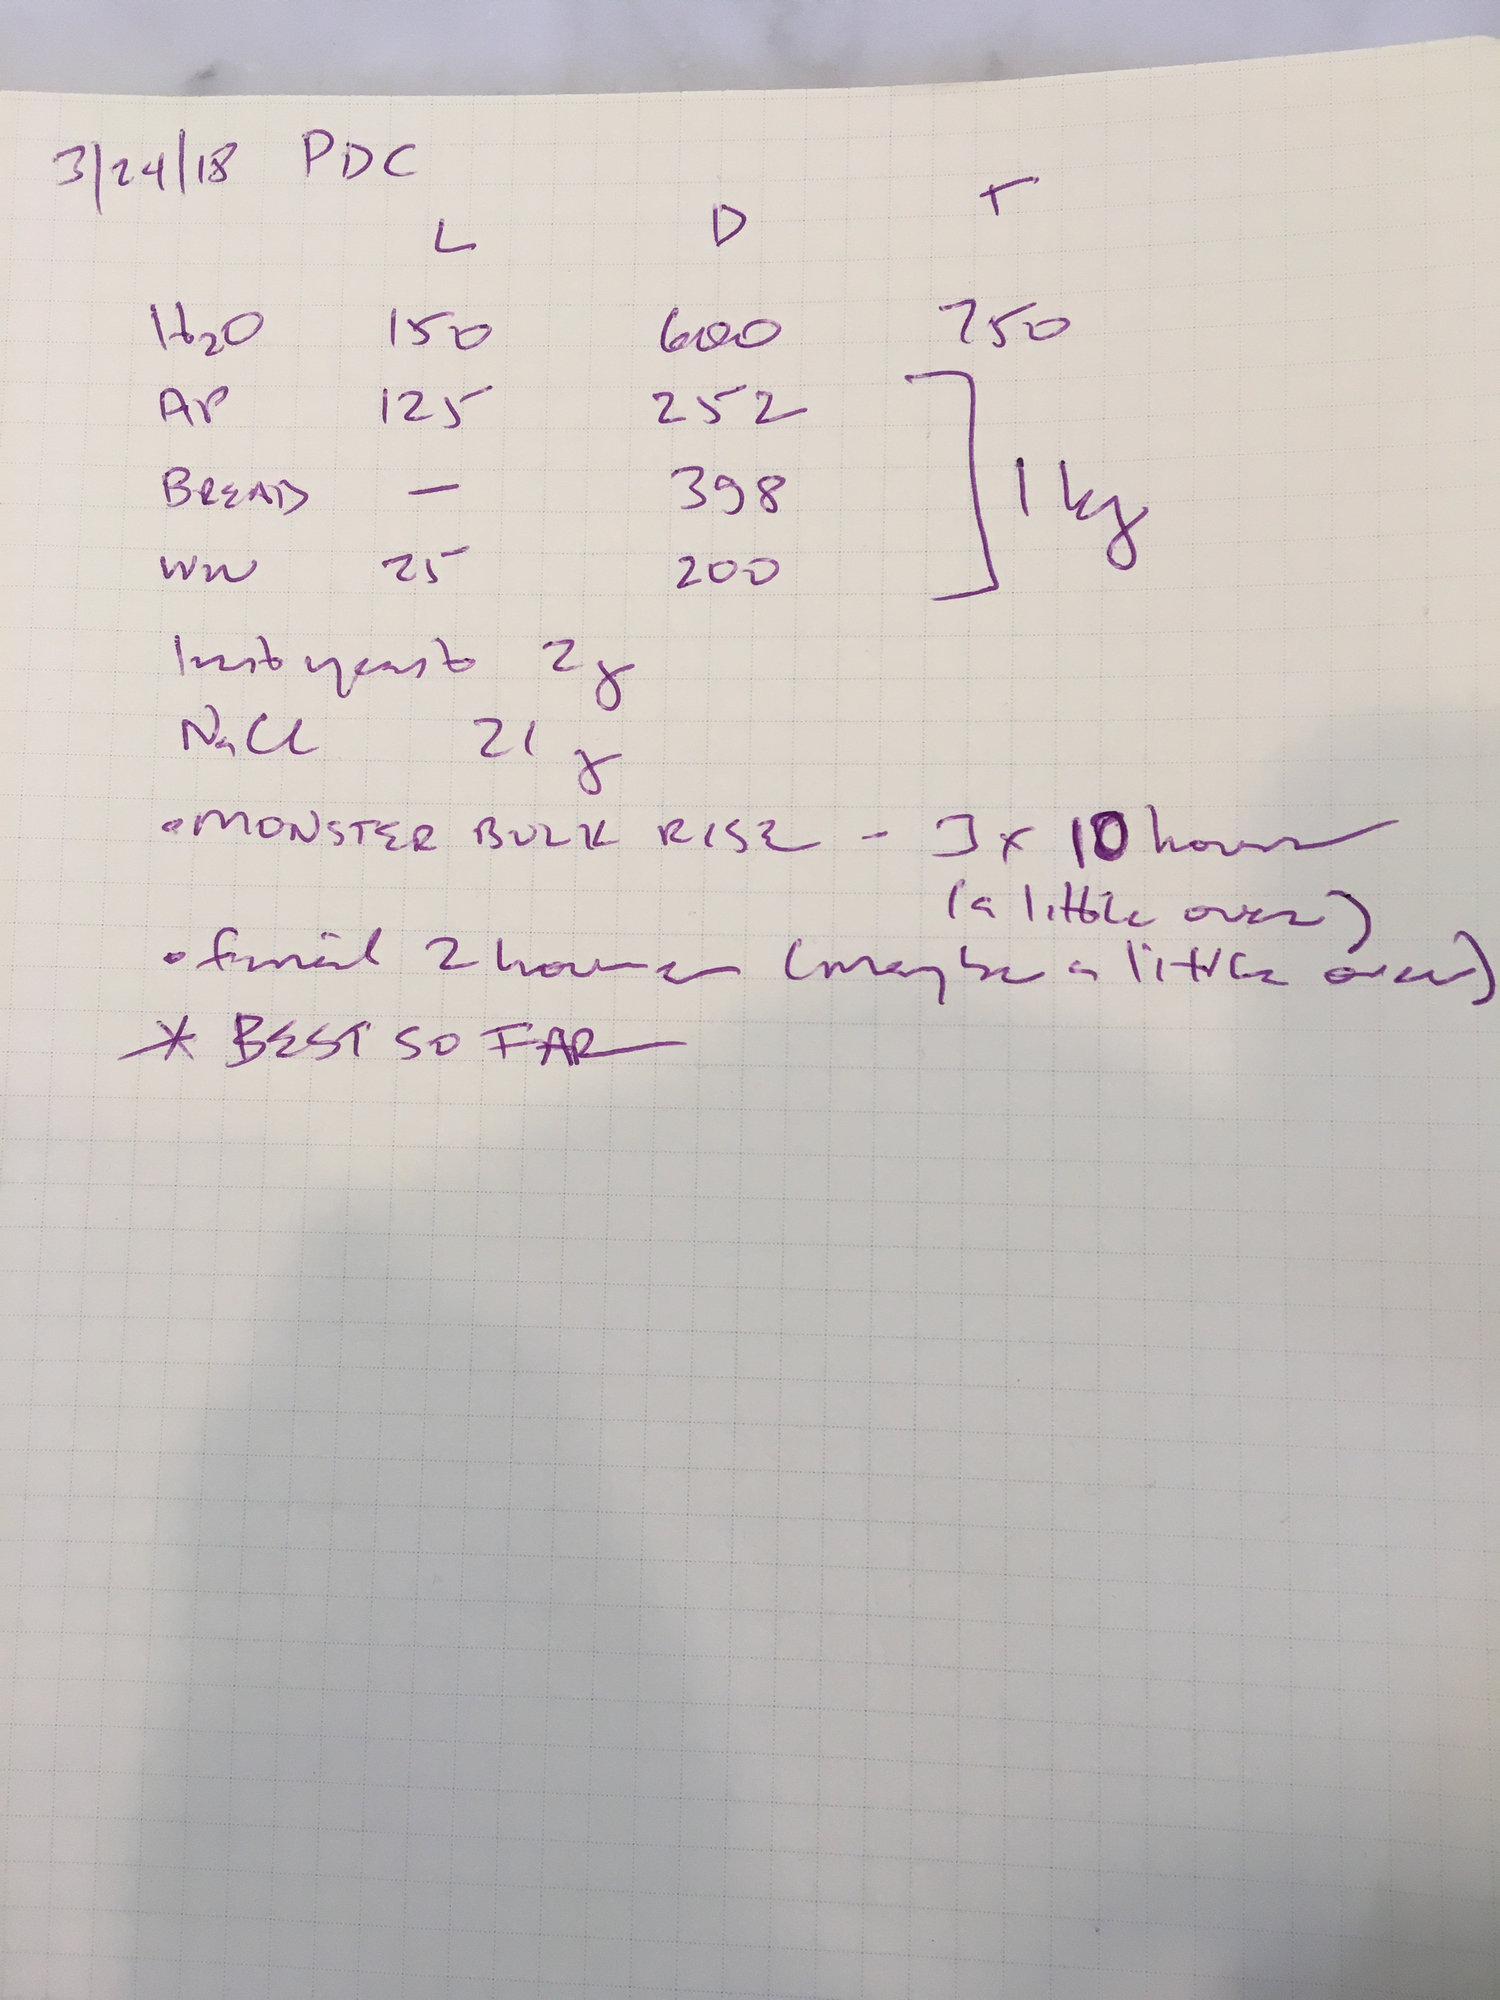 3/24/18 PDC
L D T
H₂O 150 600 750
AP 125 252
BREAD — 398
WW 25 200
1 kg
Inst yeast 2g
NaCl 21 g
• MONSTER BULK RISE - 3x 10 hours
(a little over)
• final 2 hours (maybe a little over)
* BEST SO FAR